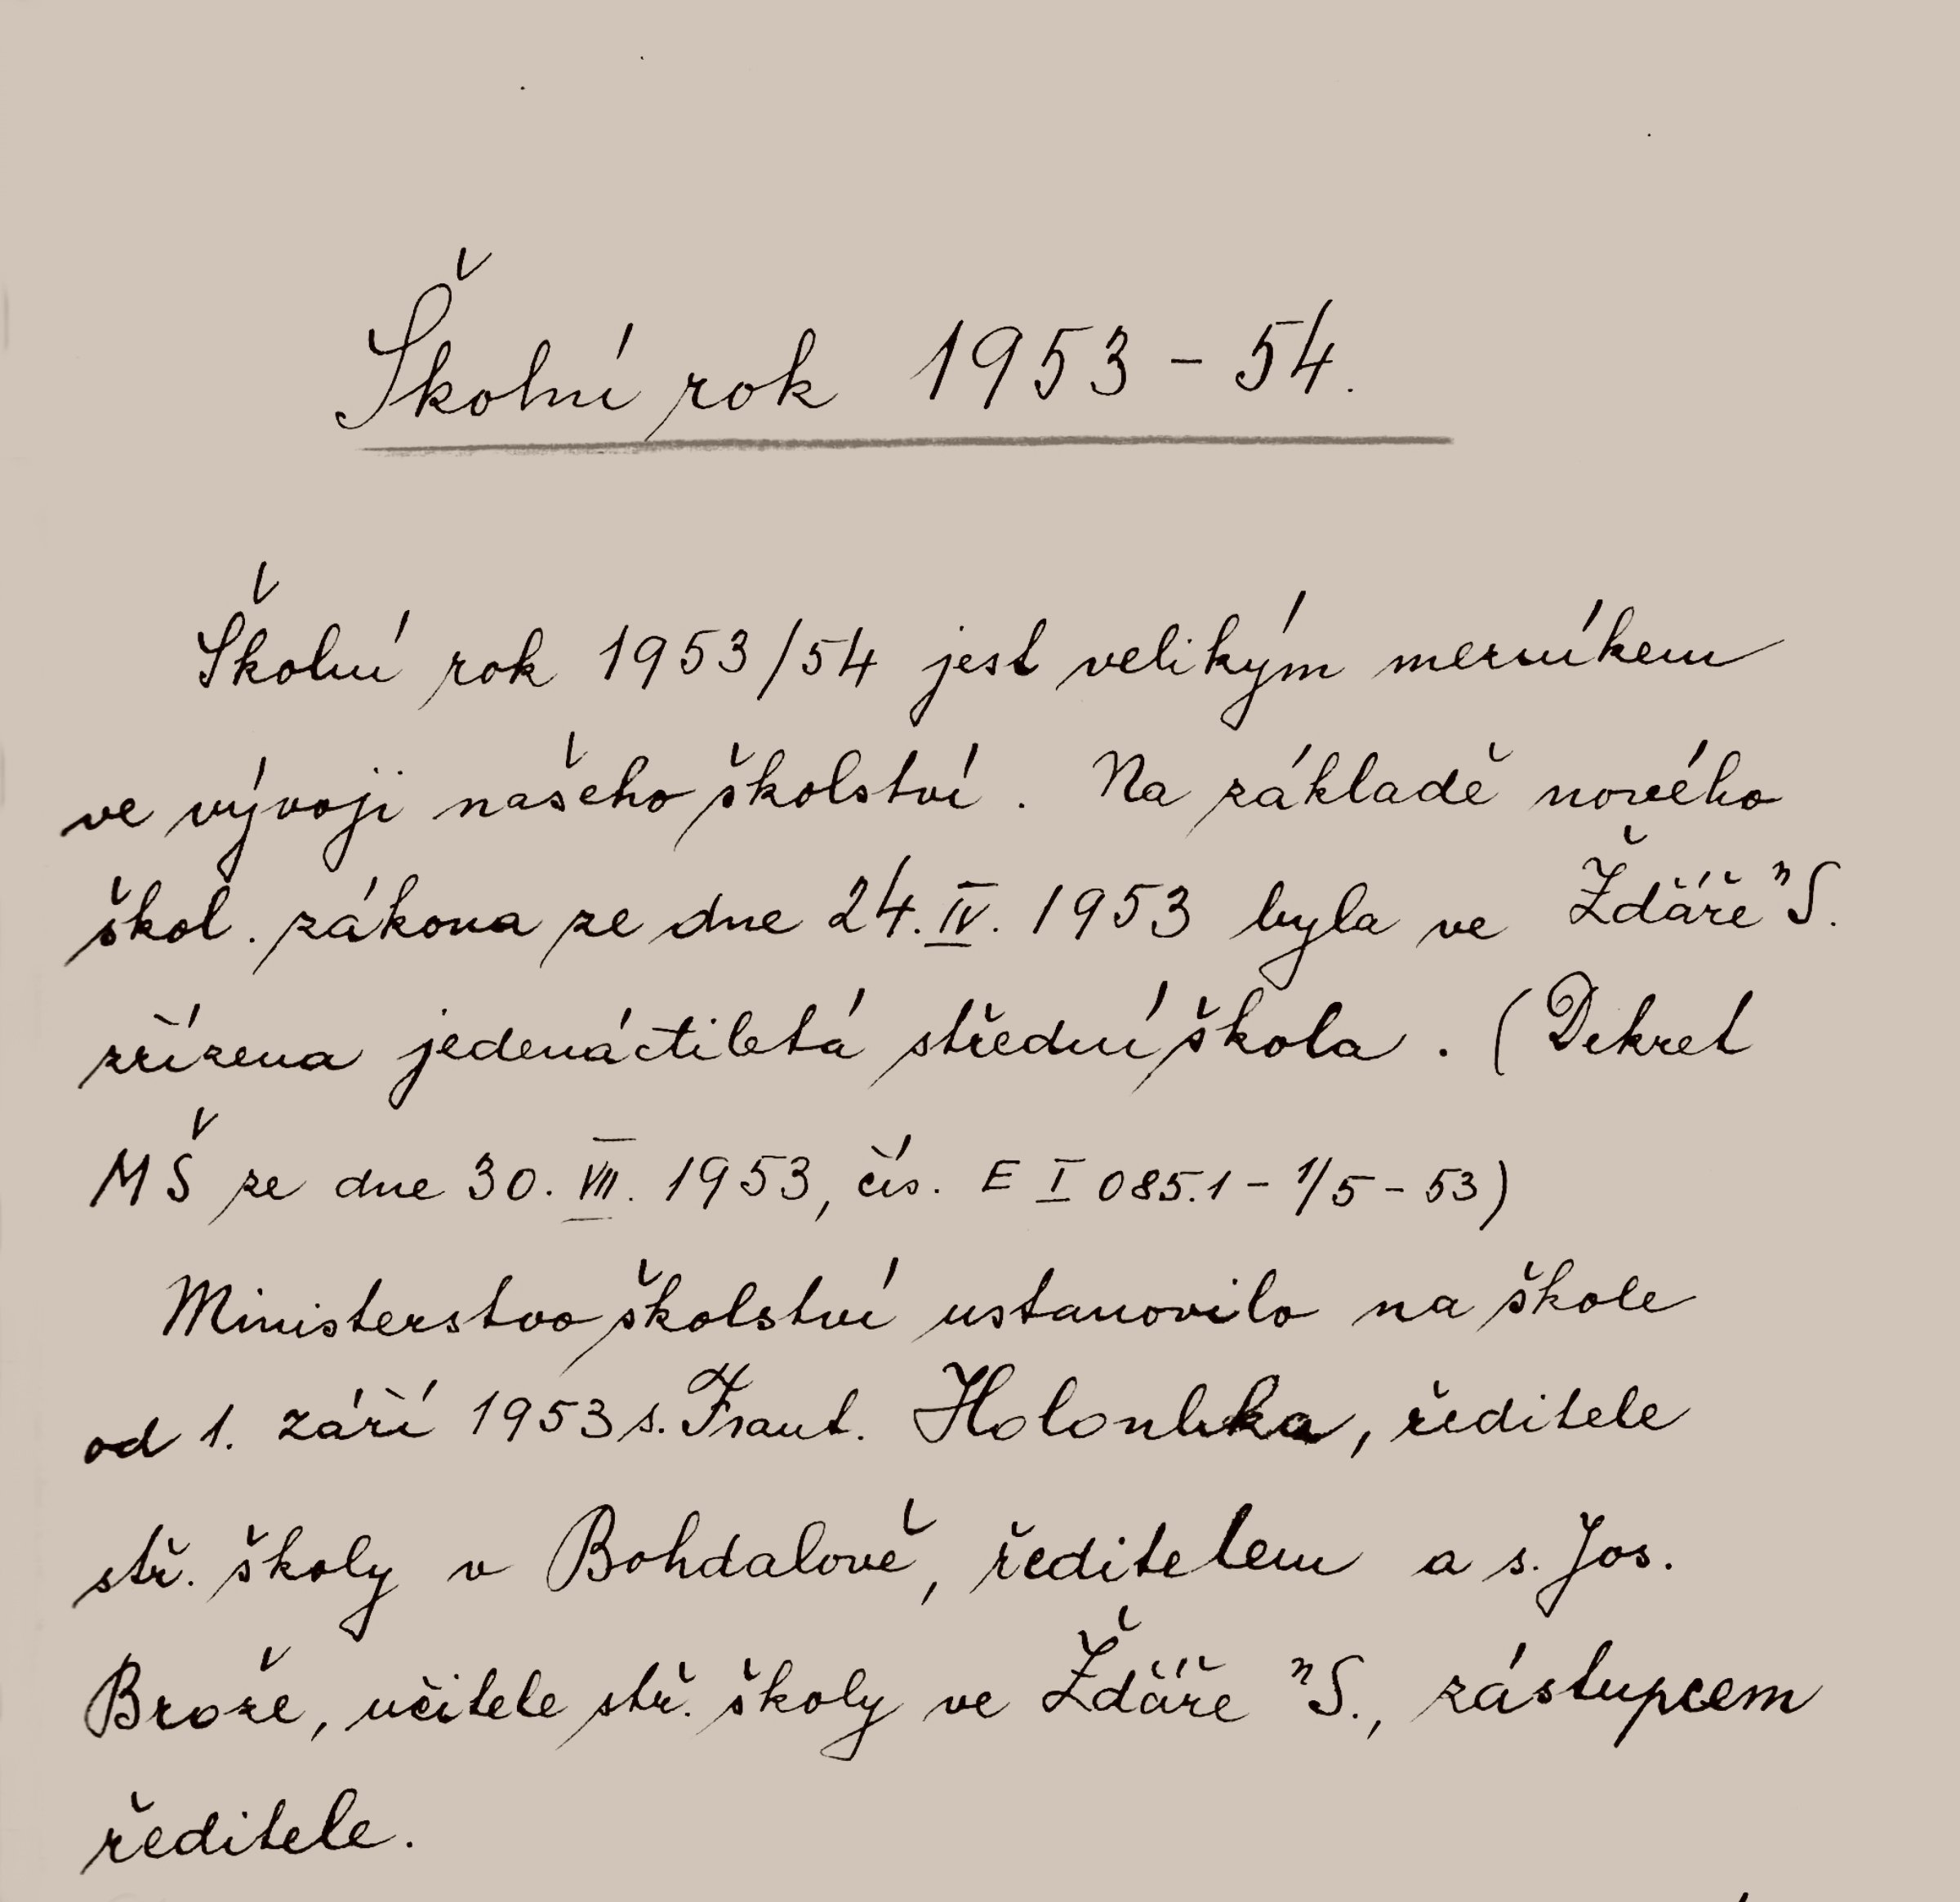 Školní rok 1953 - 54.
Školní rok 1953/54 jest velikým merníkem
ve vývoji našeho školství. Na základě nového
škol. zákona ze dne 24. IV. 1953 byla ve Žďáře n S.
zřízena jedenáctiletá střední škola. (Dekret
MŠ ze dne 30. VII. 1953, čís. E I 085.1 - 1/5 - 53)
Ministerstvo školství ustanovilo na škole
od 1. září 1953 s. Frant. Holoubka, ředitele
stř. školy v Bohdalově, ředitelem a s. Jos.
Brože, učitele stř. školy ve Žďáře n S., zástupcem
ředitele.